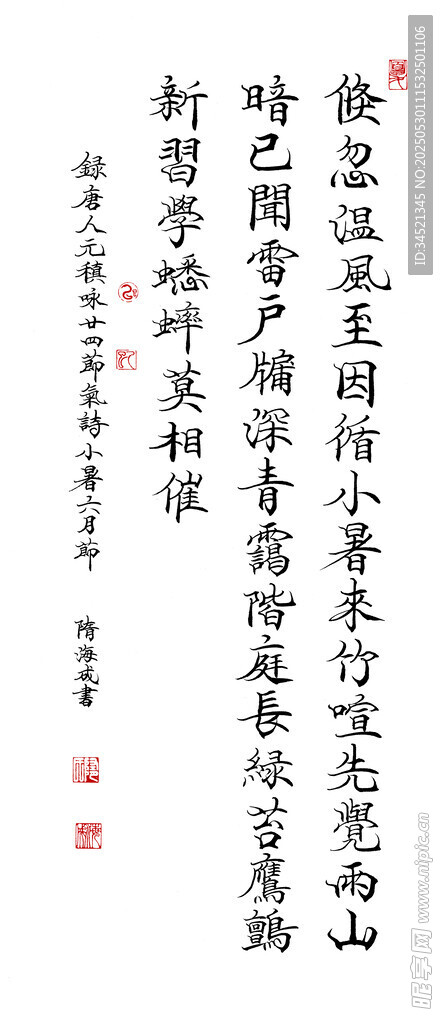 倏忽温風至因循小暑來竹喧先覺雨山
暗已聞雷戶牖深青靄階庭長緑苔鷹鸇
新習學蟋蟀莫相催
録唐人元稹咏廿四節氣詩小暑六月節 隋海成書
ID:34521345 NO:20250530111532501106
昵享网 www.nipic.cn